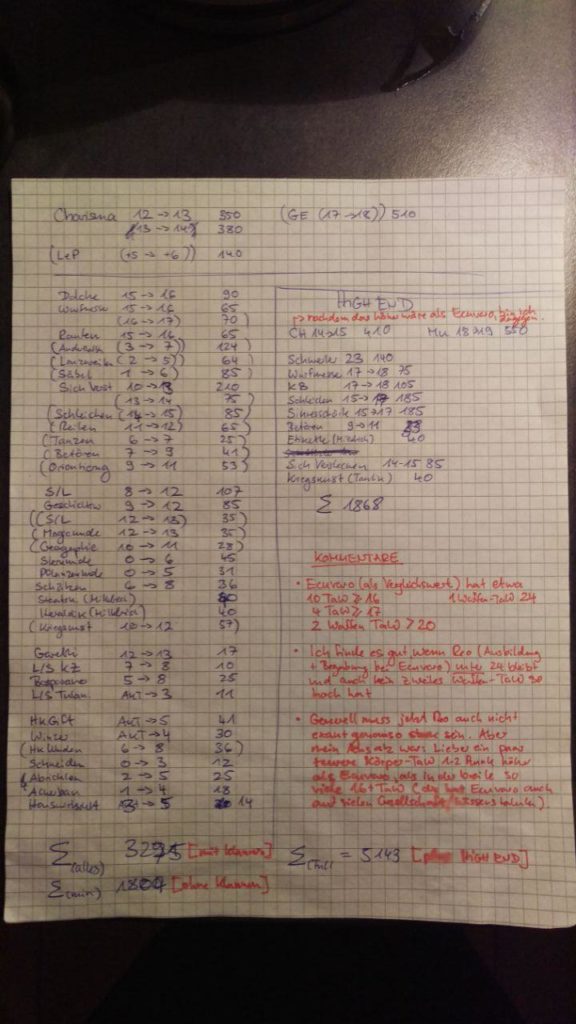 Charisma 12 → 13 350
(13 → 14) 380
(LeP (+5 → +6)) 140
(GE (17 → 18)) 510
Dolche 15 → 16 90
Wurfmesser 15 → 16 65
(16 → 17) 70)
Raufen 15 → 16 65
(3 → 7) 124
( 2 → 5) 64
(Säbel 1 → 6) 85)
Sich Verst 10 → 13 210
(13 → 14 75)
(Schleichen (14 → 15) 85)
(Reiten 11 → 12) 65)
(Tanzen 6 → 7 25)
(Betören 7 → 9 41)
(Orientierung 9 → 11 53)
S/L 8 → 12 107
Geschichtsw 9 → 12 85
((S/L 12 → 13) 35)
(Magiekunde 12 → 13) 35)
(Geographie 10 → 11 28)
Sternkunde 0 → 6 45
Pflanzenkunde 0 → 5 31
Schätzen 6 → 8 36
Staatsk (Mittelreich)
Heraldik (Mittelreich) 40
(Kriegskunst 10 → 12 57)
Garethi 12 → 13 17
L/S KZ 7 → 8 10
Bosparano 5 → 8 25
L/S Tulam. AKT → 3 11
HK Gift AKT → 5 41
Winzer AKT → 4 30
(HK Wunden 6 → 8 36)
Schneidern 0 → 3 12
Abrichten 2 → 5 25
Ackerbau 1 → 4 18
Hauswirtschaft → 5 14
∑ (alles) 3275 [mit Klammern]
∑ (min) [ohne Klammern]
HIGH END
→ nachdem das höher wäre als Ecuvaro, bin ich dagegen.
CH 14→15 410 Mu 18→19 550
Schwerter 23 140
Wurfmesser 17 → 18 75
KB 17 → 18 105
Schleichen 15 → 17 185
Sinnenschärfe 15→17 185
Betören 9 → 11
Etikette (Mittelreich) 40
Sich Verstecken 14-15 85
Kriegskunst (Taktik) 40
∑ 1868
KOMMENTARE
• Ecuvaro (als Vergleichswert) hat etwa
10 TaW ≥ 16 1 Waffen-TaW 24
4 TaW ≥ 17
2 Waffen TaW > 20
• Ich finde es gut wenn Reo (Ausbildung
+ Begabung bei Ecuvaro) unter 24 bleibt
und auch kein zweites Waffen-TaW so
hoch hat
• Generell muss jetzt Reo auch nicht
exakt genauso stark sein. Aber
mein Ansatz wars Lieber ein paar
teurere Körper-TaW 1-2 Punkt höher
als Ecuvaro, als in der breite so
viele 16+ TaW (das hat Ecuvaro auch
auf vielen Gesellschaft/Wissenstalenten).
∑ (full) = 5143 [plus HIGH END]